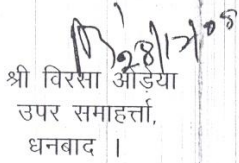 28/7/08
श्री विरसा ओड़िया
उपर समाहर्त्ता,
धनबाद ।